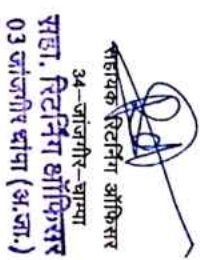 सहायक रिटर्निंग ऑफिसर
34-जांजगीर-चांपा
सहा. रिटर्निंग ऑफिसर
03 जांजगीर चांपा (अ.जा.)